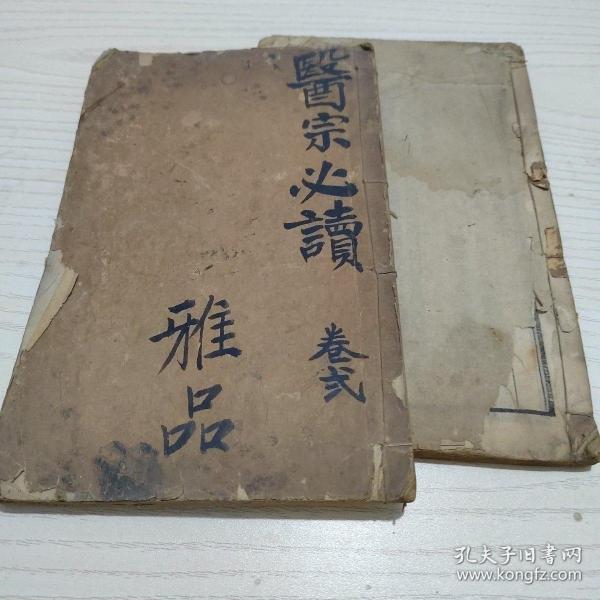 醫宗必讀
卷弍
雅品
孔夫子旧书网
www.kongfz.com